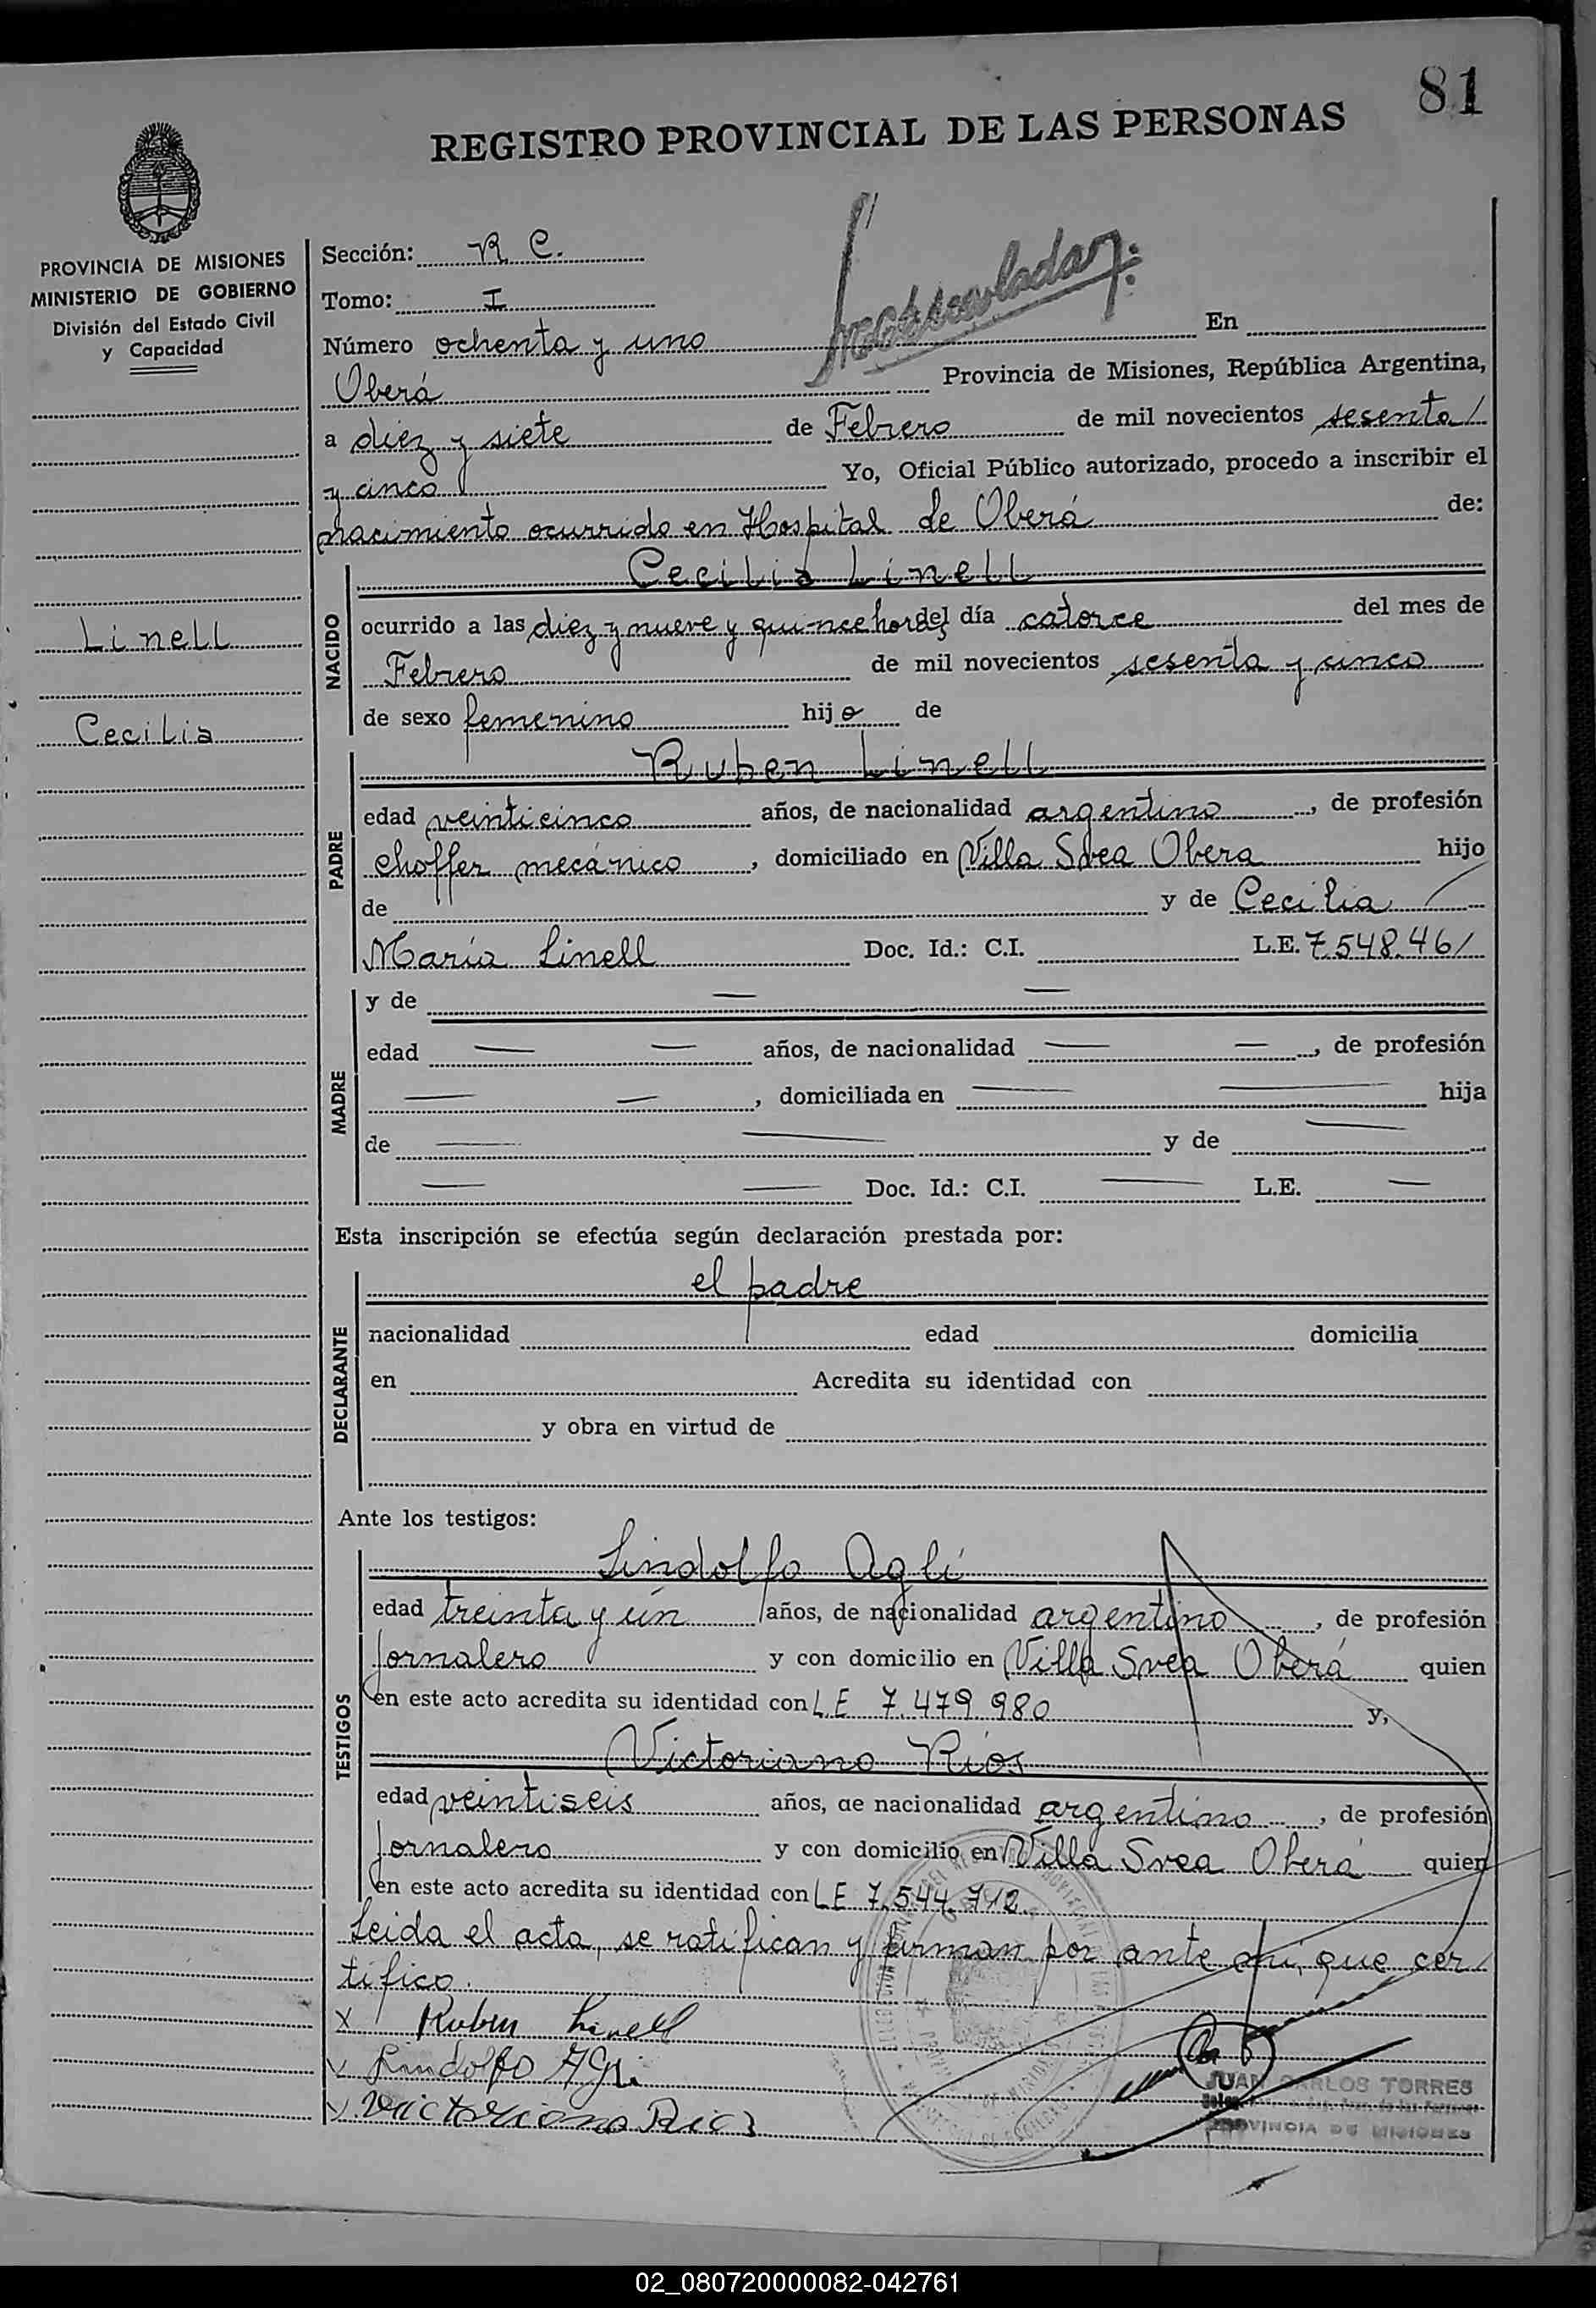 81
REGISTRO PROVINCIAL DE LAS PERSONAS
PROVINCIA DE MISIONES
MINISTERIO DE GOBIERNO
División del Estado Civil
y Capacidad
Linell
Cecilia
Sección: R C.
Tomo: I
Número ochenta y uno En
Oberá Provincia de Misiones, República Argentina,
a diez y siete de Febrero de mil novecientos sesenta/
y cinco Yo, Oficial Público autorizado, procedo a inscribir el
nacimiento ocurrido en Hospital de Oberá de:
NACIDO
Cecilia Linell
ocurrido a las diez y nueve y quince horas del día catorce del mes de
Febrero de mil novecientos sesenta y cinco
de sexo femenino hija de
PADRE
Ruben Linell
edad veinticinco años, de nacionalidad argentino, de profesión
choffer mecánico, domiciliado en Villa Svea Obera hijo
de y de Cecilia /
María Linell Doc. Id.: C.I. L.E. 7.548.461
MADRE
y de — —
edad — — años, de nacionalidad — —, de profesión
— —, domiciliada en — — hija
de — — y de —
— — Doc. Id.: C.I. — L.E. —
Esta inscripción se efectúa según declaración prestada por:
DECLARANTE
el padre
nacionalidad edad domicilia
en Acredita su identidad con
y obra en virtud de
Ante los testigos:
TESTIGOS
Lindolfo Agli
edad treinta y un años, de nacionalidad argentino, de profesión
Jornalero y con domicilio en Villa Svea Oberá quien
en este acto acredita su identidad con L.E 7.479.980 y,
Victoriano Ríos
edad veintiseis años, de nacionalidad argentino, de profesión
Jornalero y con domicilio en Villa Svea Oberá quien
en este acto acredita su identidad con LE 7.544.712.
Leida el acta, se ratifican y firman por ante mi, que cer/
tifico.
x Ruben Linell
Lindolfo Agli
Victoriano Rios
JUAN CARLOS TORRES
PROVINCIA DE MISIONES
02_080720000082-042761